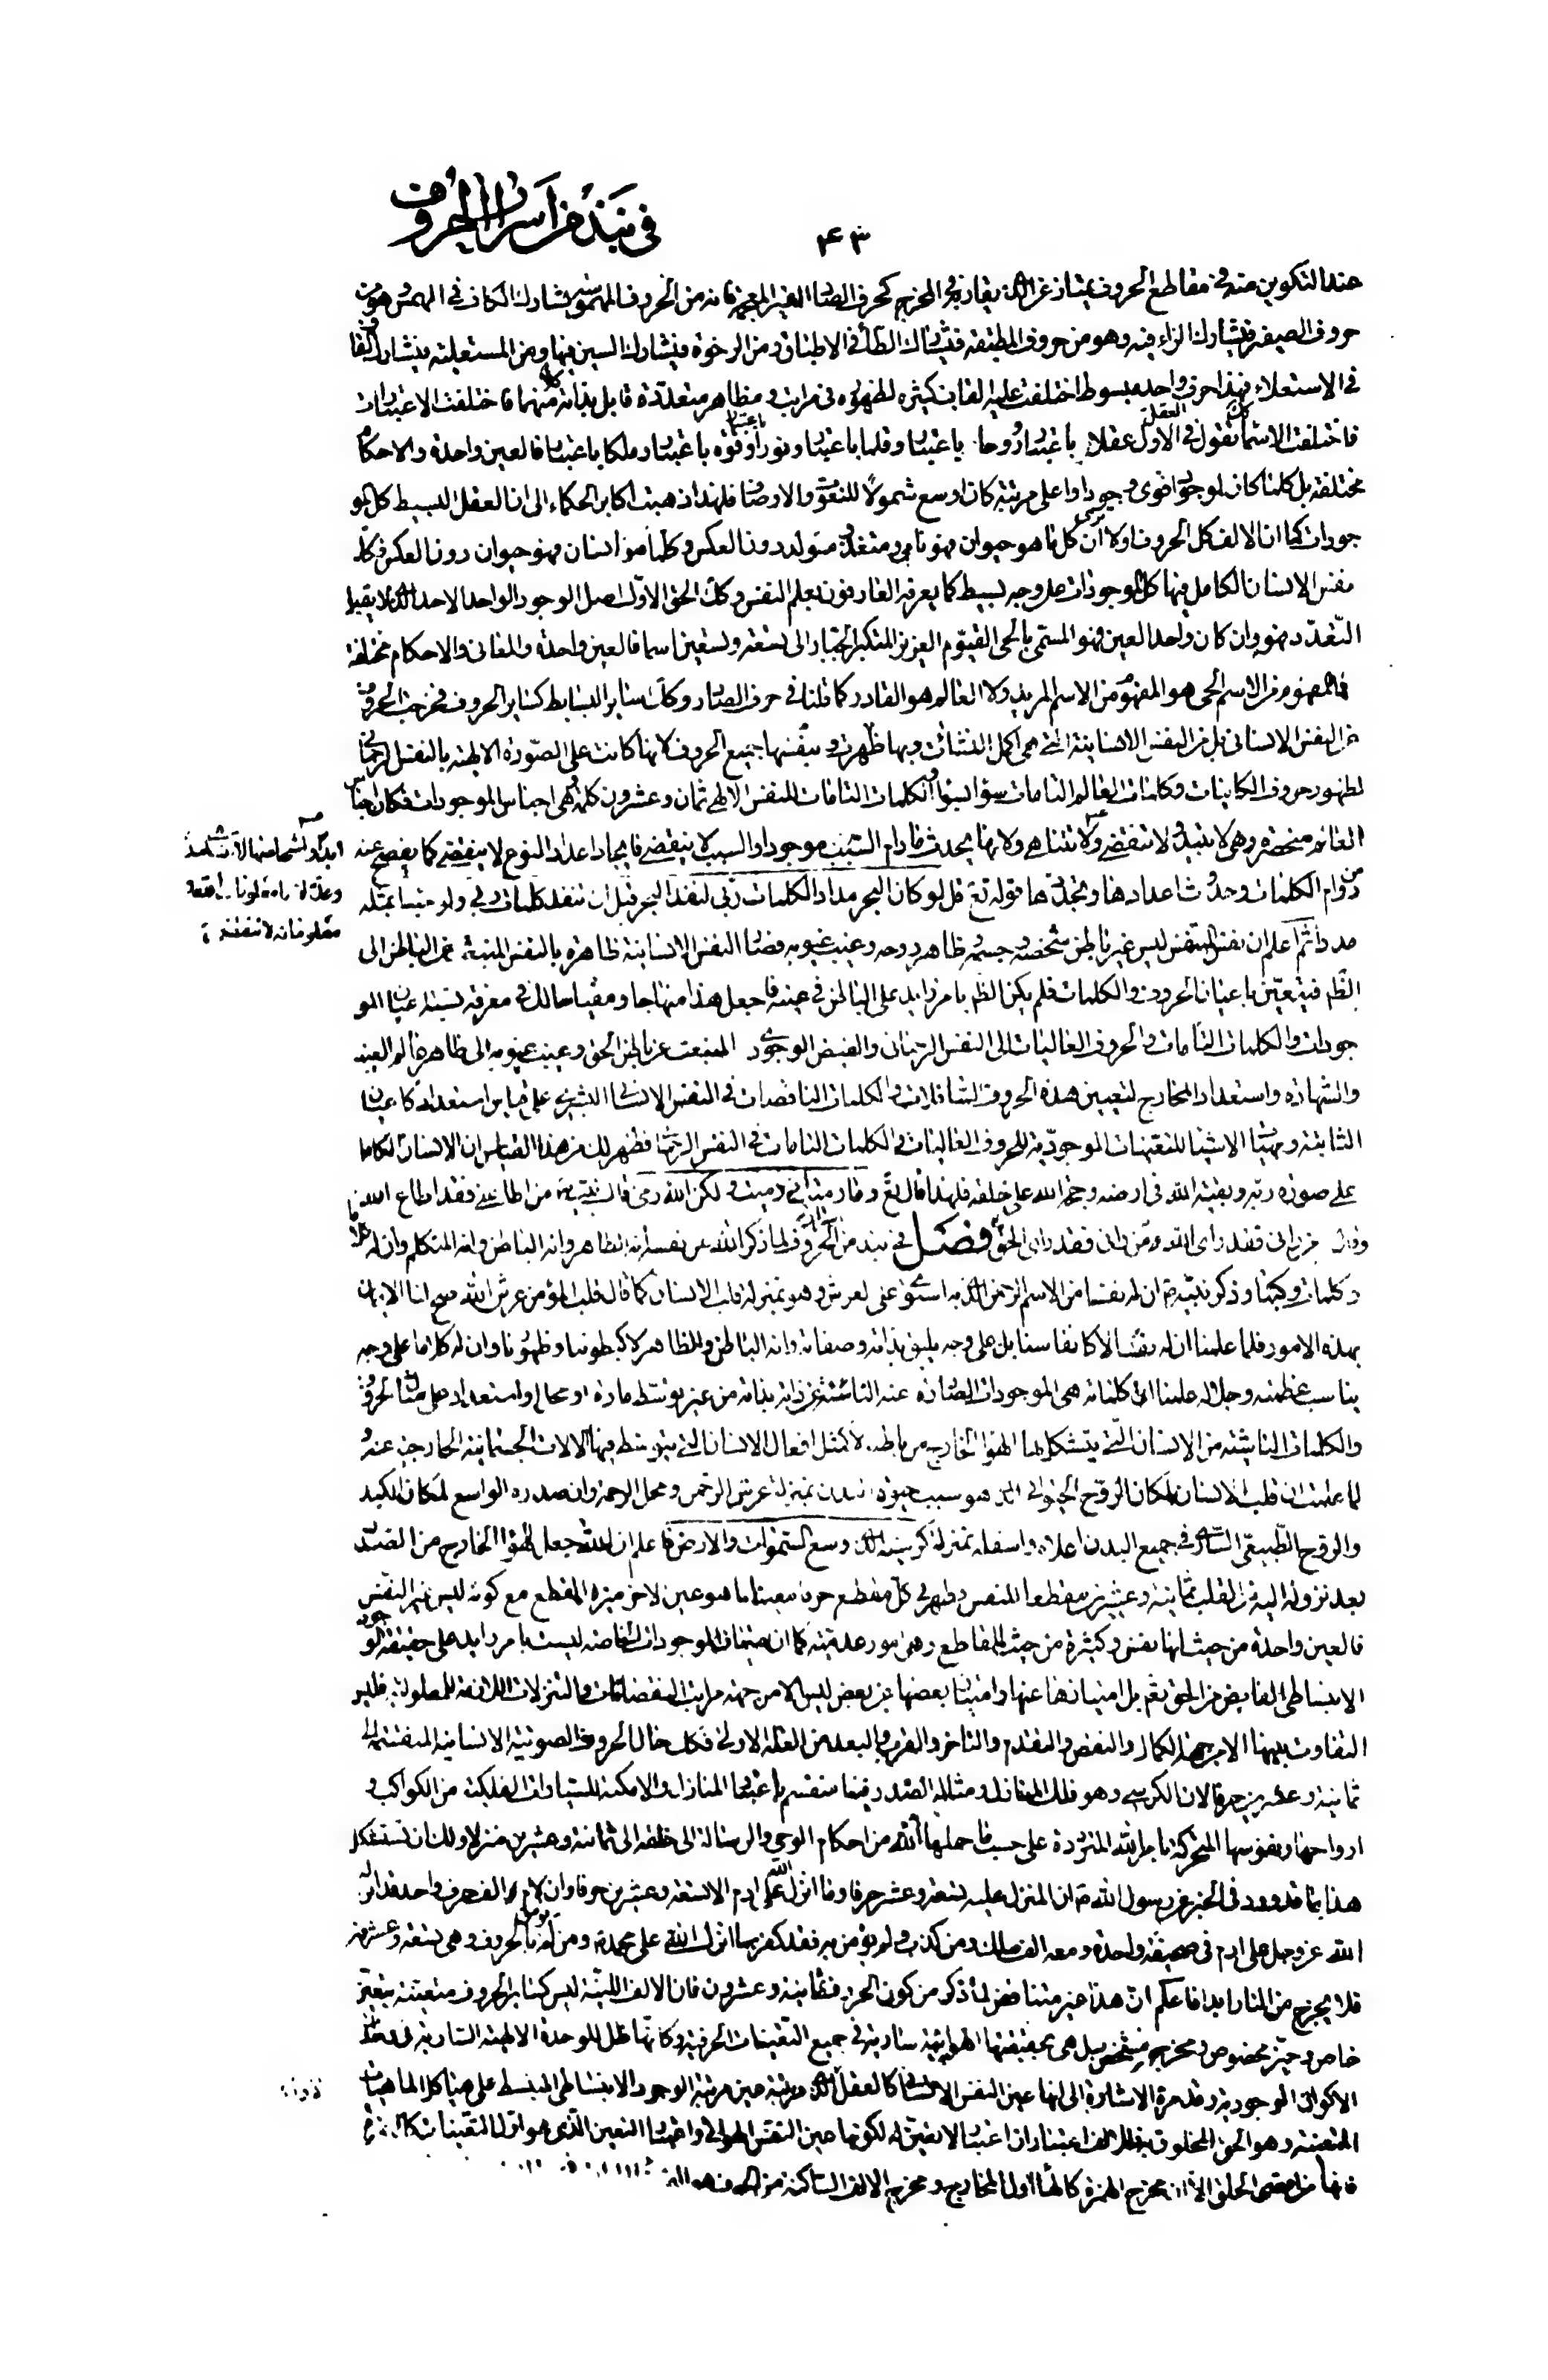 في نبذ من أسرار الحروف
٤٣
عند التكوين منه في مقاطع الحروف يمتاز عن الذي يقاربه في المخرج كحرف الصاد الغير المعجمة فانه من الحروف المهموسة يشارك الكاف في الهمس وهو من
حروف الصفير فيشارك الزاء فيه وهو من حروف المطبقة فيشارك الطاء في الاطباق ومن الرخوة فيشارك السين فيها ومن المستعلية فيشارك القاف
في الاستعلاء فهذا حرف واحد مبسوط اختلفت عليه القاب كثيرة لظهوره في مراتب ومظاهر متعددة قابل بذاته كلا منهما فاختلفت الاعتبارات
فاختلفت الاسماء كك نقول في العقل الاول عقلا باعتبار وروحا باعتبار وقلما باعتبار ونورا باعتبار وقوة باعتبار وملكا باعتبار فالعين واحدة والاحكام
مختلفة بل كلما كان الوجود اقوى وجودا واعلى مرتبة كان اوسع شمولا للنعوت والاوصاف فلهذا ذهبت اكابر الحكماء الى ان العقل البسيط كل المو
جودات كما ان الالف كل الحروف اولا ترى ان كل ما هو حيوان فهو نام ومتغذ ومتولد دون العكس وكلما هو انسان فهو حيوان دون العكس فكل
نفس الانسان الكامل فيها كل الموجودات على وجه بسيط كما يعرفه العارفون بعلم النفس وكك الحق الاول اصل الوجود الواحد الاحد الذي لا يقبل
التعدد فهو وان كان واحد العين فهو المسمى بالحي القيوم العزيز المتكبر الجبار الى تسعة وتسعين اسما فالعين واحدة والمعاني والاحكام مختلفة
فالمفهوم من الاسم الحي هو المفهوم من الاسم المريد ولا العالم هو القادر كما قلنا في حرف الصاد وكك سائر البسائط كسائر الحروف فخرجت الحروف
عن النفس الانساني بل من النفس الانسانية التي هي اكمل النشآت وبها ظهرت وبنفسها جميع الحروف لانها كانت على الصورة الالهية بالنفس الرحماني
لظهور حروف الكاينات وكلمات العالم التامات سواء بسواء والكلمات التامات للنفس الالهي ثمان وعشرون كلمة وهي اجناس الموجودات فكان اجناس
العالم منحصرة وهي لا تبيد ولا تنقضي ولا تتناهى ولانها يحدث مادام السبب موجودا والسبب لا ينقضي فايجاد اعداد النوع لا ينقضي كما يفصح عنه
من دوام الكلمات وحدوث اعدادها وتجددها قوله تع قل لو كان البحر مدادا لكلمات ربي لنفد البحر قبل ان تنفد كلمات ربي ولو جئنا بمثله
مددا ثم اعلم ان نفس المتنفس ليس غير باطن شخصه وجسمه ظاهر روحه وغيب غيوبه فصار النفس الانسانية ظاهرة بالنفس المنبعث عن الباطن الى
الظاهر فيتعين باعيان الحروف والكلمات فلم يكن الظاهر بامر زايد على الباطن في عينه فاجعل هذا منهاجا ومقياسا لك في معرفة نسبة اعيان المو
جودات والكلمات التامات والحروف العاليات الى النفس الرحماني والفيض الوجودي المنبعث عن باطن الحق وغيب غيوبه الى ظاهر عالم الغيب
والشهادة واستعداد المخارج لتعيين هذه الحروف السافلات والكلمات الناقصات في النفس الانساني البشري على قياس استعداد الاعيان
الثابتة ومهيات الاشياء للتعينات الموجودية للحروف العاليات والكلمات التامات في النفس الرحماني فظهر لك من هذا القياس ان الانسان الكامل
على صورة ربه وبقية الله في ارضه وحجة الله على خلقه فلهذا قال تع وما رميت اذ رميت ولكن الله رمى قال نبيه من اطاعني فقد اطاع الله
وقال من رآني فقد رأى الله ومن رآني فقد رأى الحق فصل في نبذ من اسرار الحروف لما ذكر الله عن نفسه انه الظاهر وانه الباطن وانه المتكلم وان له كلاما
وكلمات وكتبا وذكر نبيه ان له نفسا من الاسم الرحمن الذي به استوى على العرش وهو بمنزلة قلب الانسان كما قال قلب المؤمن عرش الله صح لنا الايمان
بهذه الامور فلما علمنا ان له نفسا لا كانفاسنا بل على وجه يليق بذاته وصفاته وانه الباطن والظاهر لا كبطوننا وظهورنا وان له كلاما على وجه
يناسب عظمته وجلاله علمنا ان كلماته هي الموجودات الصادرة عنه الناشئة عن ذاته بذاته من غير توسط مادة او محل واستعداد على مثال الحروف
والكلمات الناشئة من الانسان التي يتشكل بها الهواء الخارج من باطنه لا كمثل افعال الانسان التي يتوسط فيها الالات الجسمانية الخارجة عنه و
لما علمت ان قلب الانسان لمكان الروح الحيواني الذي هو سبب حيوة البدن بمنزلة عرش الرحمن ومحل الرحمة وان صدره الواسع لمكان الكبد
والروح الطبيعي الساري في جميع البدن اعلاه واسفله بمنزلة كرسيه الذي وسع السموات والارض فاعلم ان الله جعل الهواء الخارج من الصدر
بعد نزوله اليه من القلب ثمانية وعشرين مقطعا للنفس وظهر في كل مقطع حرفا معينا ما هو عين الاخر ميزه المقطع مع كونه ليس غير النفس
فالعين واحدة من حيث انها نفس وكثيرة من حيث المقاطع وهي امور عدمية كما ان مهيات الموجودات الخاصة ليست بامر زايد على حقيقة الوجود
الانبساطي الفايض من الحق تع بل امتيازها عنها وامتياز بعضها عن بعض ليس الا من جهة مراتب النقصانات والتنزلات اللازمة للمعلولية فليس
التفاوت بينهما الا من جهة الكمال والنقص والتقدم والتاخر والقرب والبعد من العلة الاولى فكك حال الحروف الصوتية الانسانية المنقسمة الى
ثمانية وعشرين حرفا لان الكرسي وهو فلك المنازل ومثاله الصدر فينا منقسم باعتبار المنازل والامكنة للسيارات الفلكية من الكواكب و
ارواحها ونفوسها المتحركة بامر الله المترددة على حسب ما حملها الله من احكام الوحي والرسالة الى خلقه الى ثمانية وعشرين منزلا ولك ان تستشكل
هذا بما قد ورد في الخبر عن رسول الله ان المنزل عليه تسعة وعشرون حرفا وما انزل الله على ادم الا تسعة وعشرين حرفا وان لام الف حرف واحد قد انزله
الله عز وجل على ادم في صحيفة واحدة ومعه الف ملك ومن كذب ولم يؤمن به فقد كفر بما انزل الله على محمد ومن لم يؤمن بالحروف وهي تسعة وعشرون
فلا يخرج من النار ابدا فاعلم ان هذا غير مناقض لما ذكر من كون الحروف ثمانية وعشرون فان الالف اللينة ليس كسائر الحروف متعينة بتعين
خاص وحيز مخصوص ومخرج مشخص بل هي بحقيقتها الهوائية سارية في جميع التعينات الحرفية وكانها ظل للوحدة الالهية السارية في
الاكوان الوجودية وقد مرت الاشارة الى انها عين النفس الانساني كالعقل الذي مرتبة عين مرتبة الوجود الانبساطي المنبسط على هياكل الماهيات
المتعينة وهو الحق المخلوق به فللالف اعتباران اعتبار اللاتعين له لكونها عين النفس الهوائي واعتبار التعين الذي هو اول التعينات
فانها من اقصى الحلق الا ان مخرج الهمزة كانها اول المخارج ومخرج الالف الساكنة من